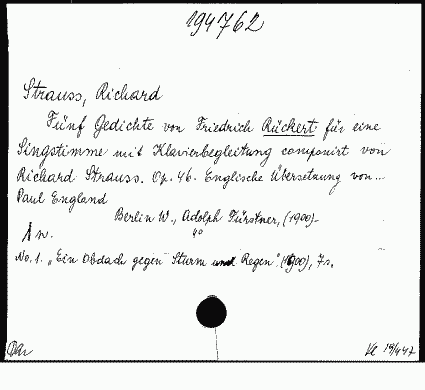 194762
Strauss, Richard
Fünf Gedichte von Friedrich Rückert für eine
Singstimme mit Klavierbegleitung componirt von
Richard Strauss. Op. 46. Englische Übersetzung von...
Paul England
Berlin W., Adolph Fürstner, (1900-
1 n.
No. 1. „Ein Obdach gegen Sturm und Regen". (1900), 7 s.